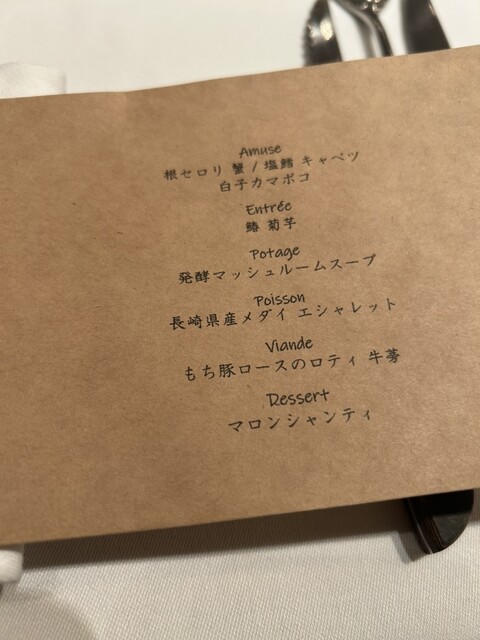 Amuse
根セロリ 蟹 / 塩鱈 キャベツ
白子カマボコ
Entrée
鰆 菊芋
Potage
発酵マッシュルームスープ
Poisson
長崎県産メダイ エシャレット
Viande
もち豚ロースのロティ 牛蒡
Dessert
マロンシャンティ